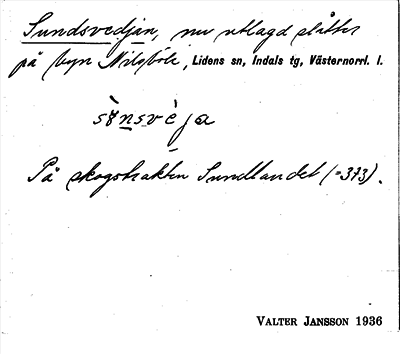 Sundsvedjan, nu utlagd slåtter
på byn Nilsböle, Lidens sn, Indals tg, Västernorrl. l.
sɤ̀nsvè ja
På skogstrakten Sundlandet (=373).
VALTER JANSSON 1936